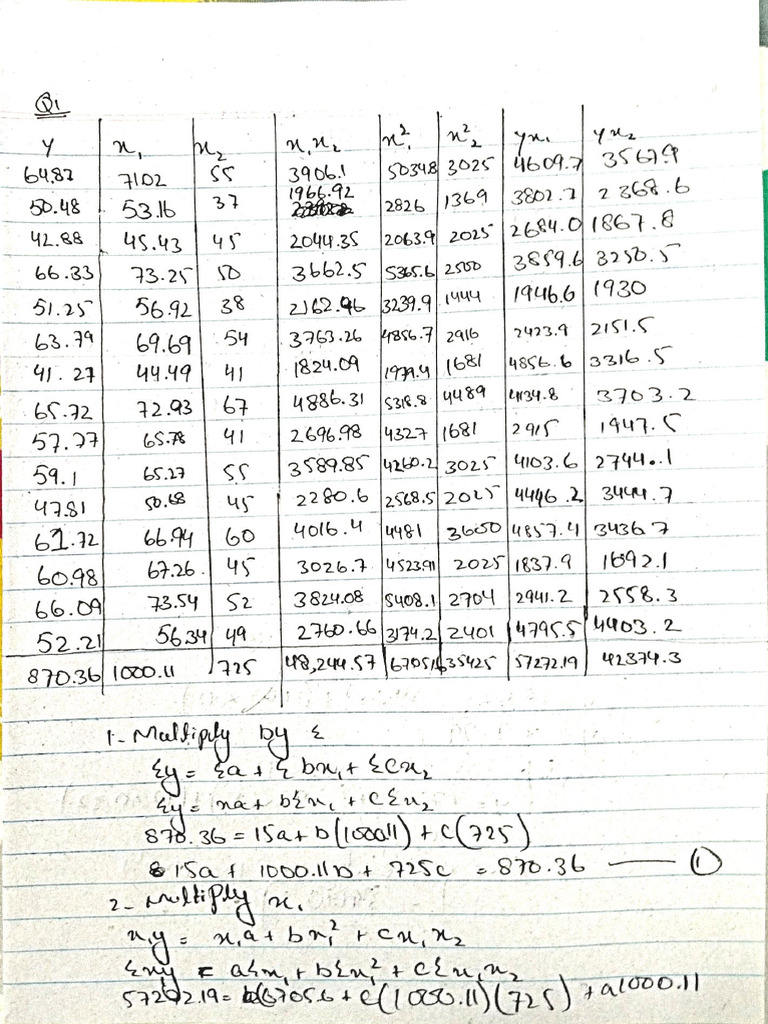 Q1
y x₁ x₂ x₁x₂ x₁² x₂² yx₁ yx₂
64.87 7102 55 3906.1 5034.8 3025 4609.7 3567.9
50.48 53.16 37 1966.92 2826 1369 3802.7 2368.6
42.88 45.43 45 2044.35 2063.9 2025 2684.0 1867.8
66.33 73.25 50 3662.5 5365.6 2500 3859.6 3250.5
51.25 56.92 38 2162.96 3239.9 1444 1946.6 1930
63.79 69.69 54 3763.26 4856.7 2916 2423.9 2151.5
41.27 44.49 41 1824.09 1979.4 1681 4856.6 3316.5
65.72 72.93 67 4886.31 5318.8 4489 4134.8 3703.2
57.77 65.78 41 2696.98 4327 1681 2915 1947.5
59.1 65.27 55 3589.85 4260.2 3025 4103.6 2744.1
47.81 50.68 45 2280.6 2568.5 2025 4446.2 3444.7
61.72 66.94 60 4016.4 4481 3600 4857.4 3436.7
60.98 67.26 45 3026.7 4523.91 2025 1837.9 1692.1
66.09 73.54 52 3824.08 5408.1 2704 2941.2 2558.3
52.21 56.34 49 2760.66 3174.2 2401 4795.5 4403.2
870.36 1000.11 725 48,244.57 35425 57272.19 42374.3
1- Multiply by Σ
Σy = Σa + Σbx₁ + Σcx₂
Σy = na + bΣx₁ + cΣx₂
870.36 = 15a + b(1000.11) + c(725)
15a + 1000.11b + 725c = 870.36 —— ①
2- Multiply x₁
x₁y = x₁a + bx₁² + cx₁x₂
Σx₁y = aΣx₁ + bΣx₁² + cΣx₁x₂
57272.19 = b(6705.6 + c(1000.11)(725) + a1000.11